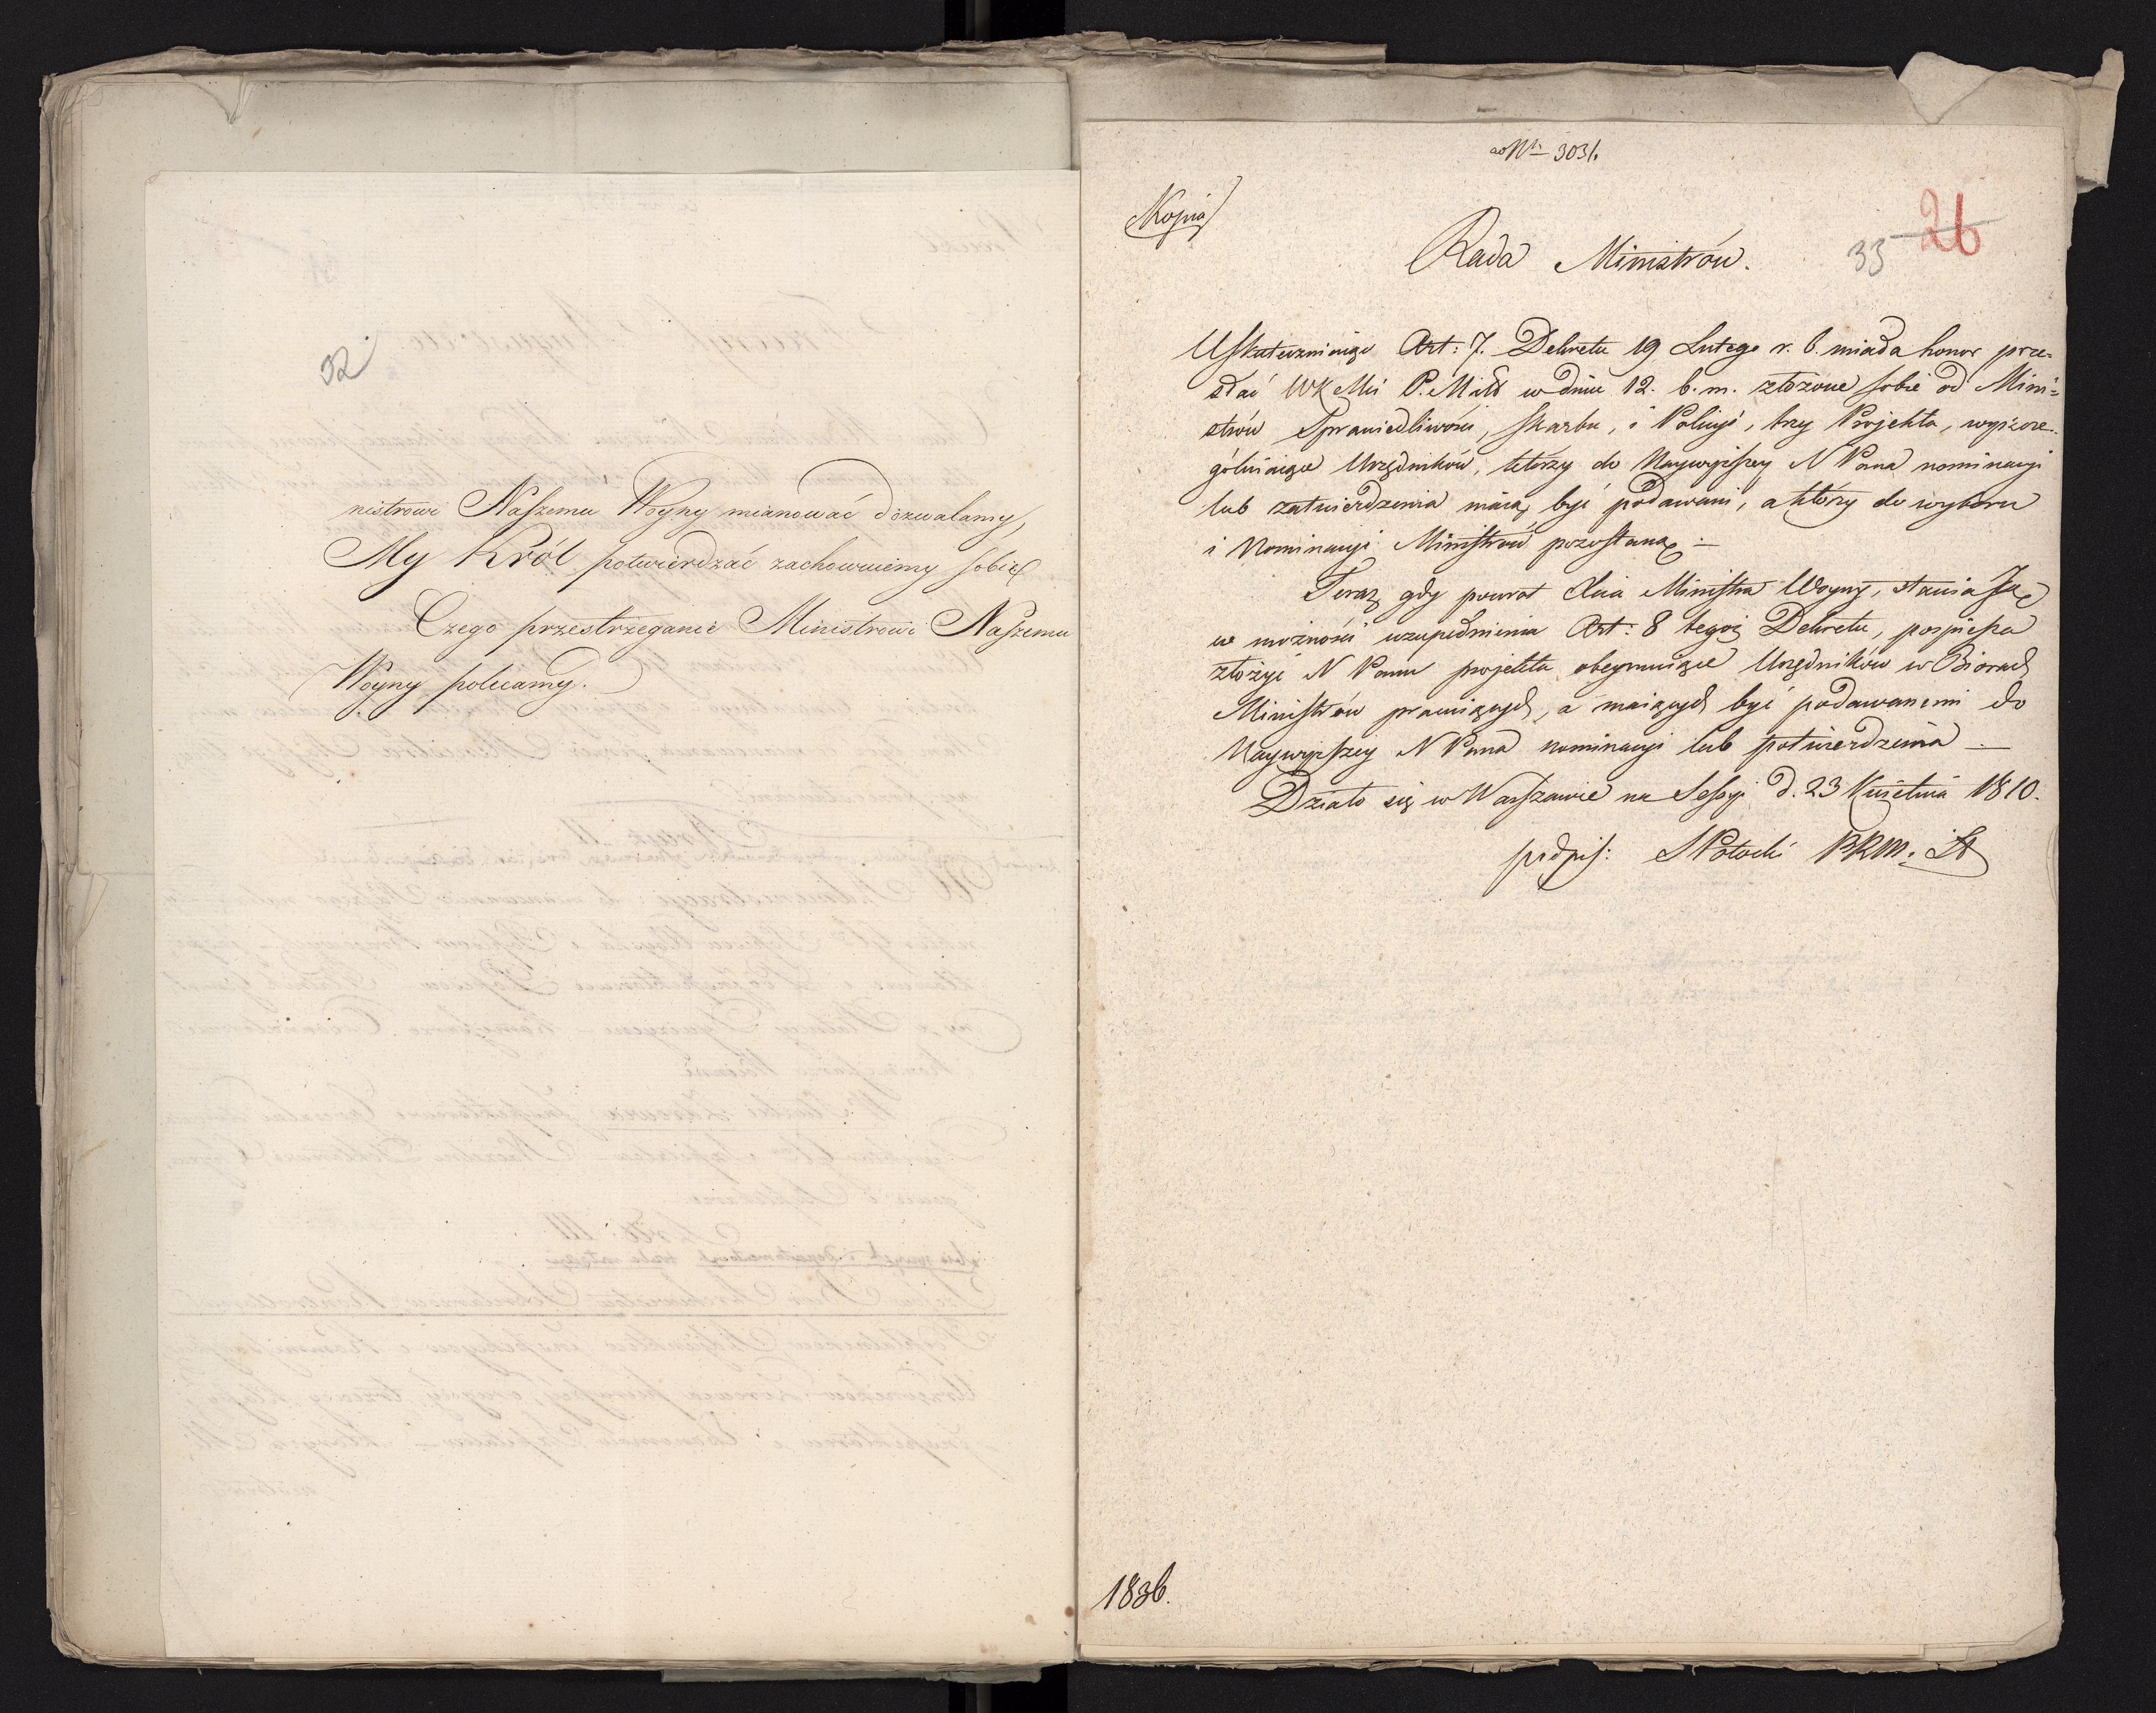 32
nistrowi Naszemu Woyny mianować dozwalamy,
My Król potwierdzać zachowuiemy sobie
Czego przestrzeganie Ministrowi Naszemu
Woyny polecamy.
ad Nr 3031.
Kopia
26
33
Rada Ministrów.
Uskuteczniaiąc Art: 7. Dekretu 19 Lutego r. b. miała honor prze-
słać WKMci P. Miłł w dniu 12. b. m. złożone sobie od Mini-
strów Sprawiedliwości, Skarbu, i Policyi, trzy Projekta, wyszcze-
gólniaiące Urzędników, którzy do Naywyższey N Pana nominacyi
lub zatwierdzenia maią być podawani, a którzy do wyboru
i Nominacyi Ministrów pozostaną. –
Teraz gdy powrót Ministra Woyny, stawia Ją
w możności uzupełnienia Art: 8 tegoż Dekretu, pospiesza
złożyć N Panu projekta obeymuiące Urzędników w Biorach
Ministrów pracuiących, a maiących być podawanemi do
Naywyższey N Pana nominacyi lub potwierdzenia –
Działo się w Warszawie na Sessyi d. 23 Kwietnia 1810.
podpis: S Potocki PRM.
1836.